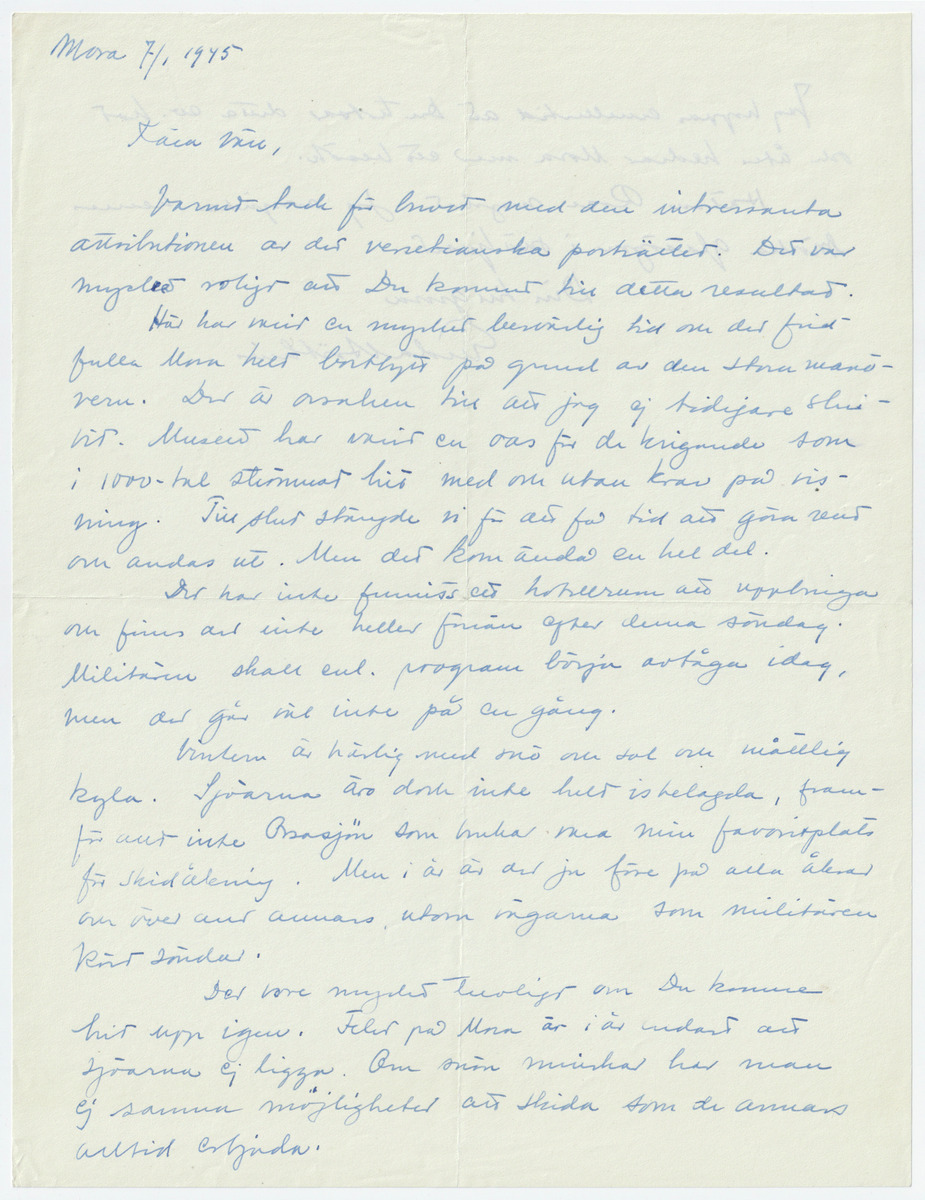 Mora 7/1 1945
Kära vän,
Varmt tack för brevet med den intressanta
attributionen av det venetianska porträttet. Det var
mycket roligt att Du kommit till detta resultat.
Här har varit en mycket besvärlig tid och det frid-
fulla Mora helt förbytt på grund av den stora manö-
vern. Det är orsaken till att jag ej tidigare skri-
vit. Museet har varit en oas för de krigande som
i 1000-tal strömmat hit med och utan krav på vis-
ning. Till slut stängde vi för att få tid att göra rent
och andas ut. Men det kom ändå en hel del.
Det har inte funnits ett hotellrum att uppbringa
och finns det inte heller förrän efter denna söndag.
Militären skall enl. program börja avtåga idag,
men det går väl inte på en gång.
Vintern är härlig med snö och sol och måttlig
kyla. Sjöarna äro dock inte helt isbelagda, fram-
för allt inte Orsasjön som brukar vara min favoritplats
för skidåkning. Men i år är det ju före på alla åkrar
och över allt annars, utom vägarna som militären
kört sönder.
Det vore mycket trevligt om Du komme
hit upp igen. Felet på Mora är i år endast att
sjöarna ej ligga. Om snön minskar har man
ej samma möjligheter att skida som de annars
alltid erbjuda.